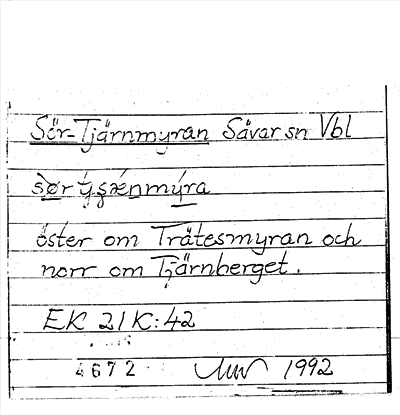 Sör-Tjärnmyran Sävar sn Vbl
sør
öster om Trätesmyran och
norr om Tjärnberget.
EK 21K:42
4672 1992